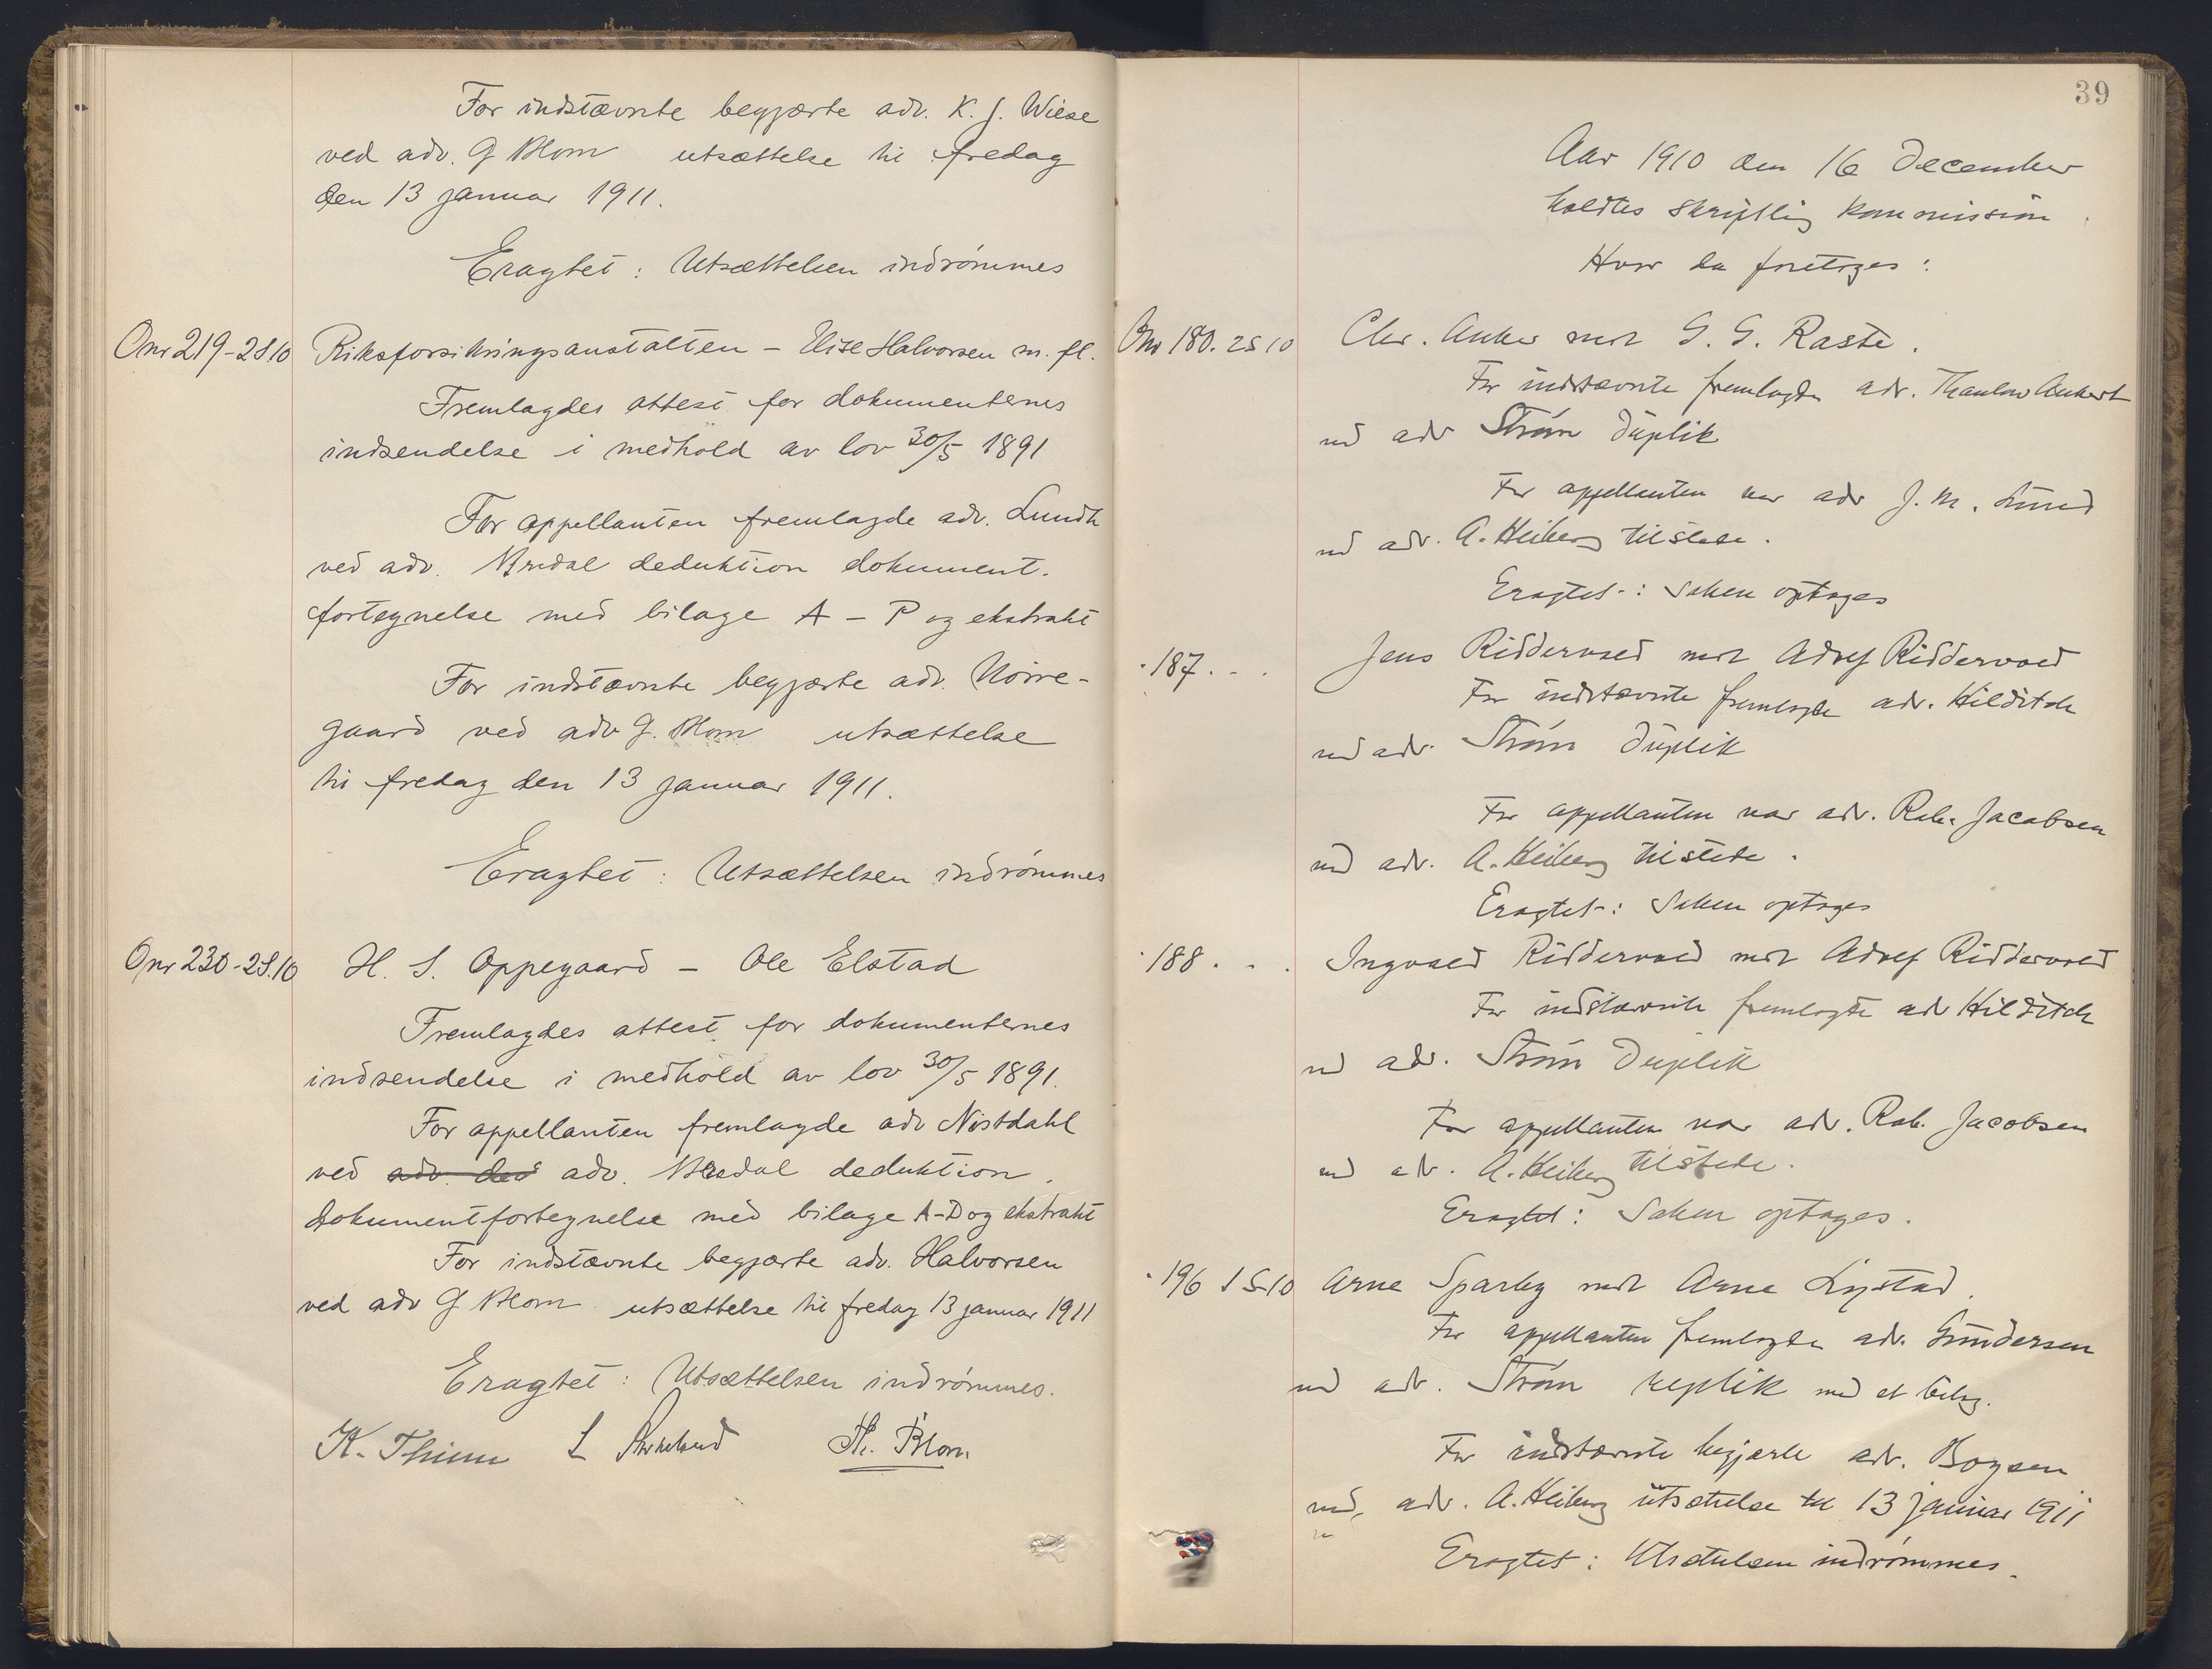 For indstævnte begjærte adv. K. J. Wiese
ved adv. G Blom utsættelse til fredag
den 13 januar 1911.
Eragtet: Utsættelsen indrømmes
Onr 219-2S.10 Riksforsikringsanstalten - Elise Halvorsen m. fl.
Fremlagdes attest for dokumenternes
indsendelse i medhold av lov 30/5 1891
For appellanten fremlagde adv. Lundh
ved adv. Bredal deduktion dokument-
fortegnelse med bilage A - P og ekstrakt
For indstævnte begjærte adv. Nörre-
gaard ved adv G. Blom utsættelse
til fredag den 13 januar 1911.
Eragtet: Utsættelsen indrømmes
Onr 230-2S.10 H. S. Oppegaard - Ole Elstad
Fremlagdes attest for dokumenternes
indsendelse i medhold av lov 30/5 1891.
For appellanten fremlagde adv Nistdahl
ved adv. ded adv. Bredal deduktion,
dokumentfortegnelse med bilage A-D og ekstrakt
For indstævnte begjærte adv. Halvorsen
ved adv G Blom utsættelse til fredag 13 januar 1911
Eragtet: Utsættelsen indrømmes.
K. Thinn L Th. Blom
39
Aar 1910 den 16 December
holdtes skriftlig kommission
Hvor da foretoges:
Onr 180. 2S10 Chr. Anker mot G. G. Raste.
For indstævnte fremlagde adv. Thaulow Ankert
ved adv Strøm duplik
For appellanten var adv J. M. Lund
ved adv. A. Heiberg tilstede.
Eragtet: Saken optages
" 187. - . Jens Riddervold mot Adolf Riddervold
For indstævnte fremlagde adv. Hilditch
ved adv. Strøm duplik
For appellanten var adv. Rob. Jacobsen
ved adv. A. Heiberg tilstede.
Eragtet: Saken optages
" 188. - . Ingvald Riddervold mot Adolf Riddervold
For indstævnte fremlagde adv Hilditch
ved adv. Strøm Duplik
For appellanten var adv. Rob. Jacobsen
ved adv. A. Heiberg tilstede.
Eragtet: Saken optages.
" 196 1S10 Arne Sparby mot Arne Lystad.
For appellanten fremlagde adv. Gundersen
ved adv. Strøm replik med et bilag.
For indstævnte begjærte adv. Boysen
ved adv. A. Heiberg utsættelse til 13 januar 1911
Eragtet: Utsættelsen indrømmes.